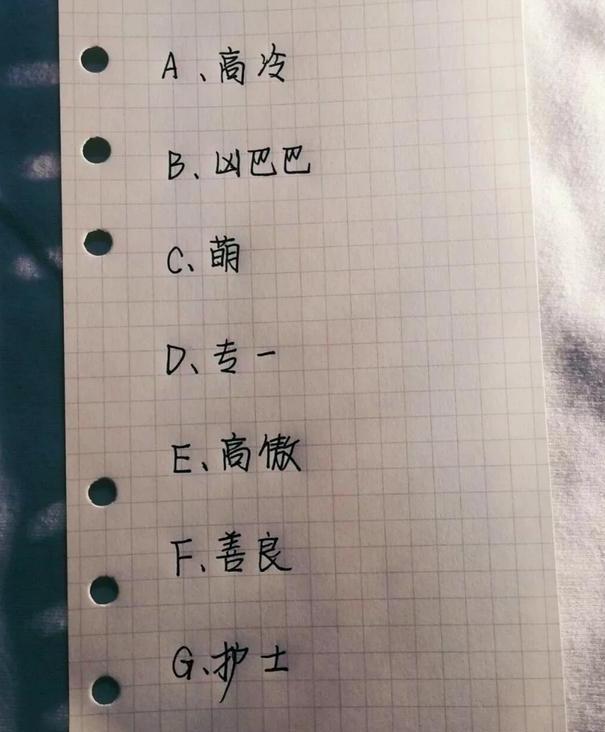 A、高冷
B、凶巴巴
C、萌
D、专一
E、高傲
F、善良
G、护士